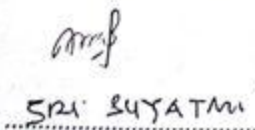 SRI SUYATMI